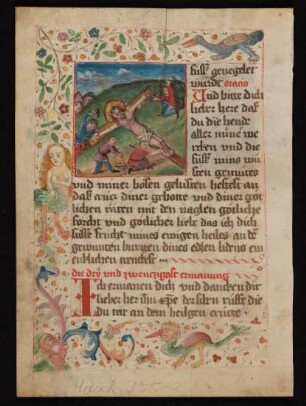 füss genegelet
wurdt oratio
Und bitte dich
lieber here das
du die hende
aller miner we
rcken und die
füss mins wil
len gemütes
und miner bösen gelüsten heftest an
das crütz diner gebotte und diner göt
lichen räten mit den naglen götlicher
forcht und götlicher liebe das ich dich
süsse frücht mines ewigen heiles an der
gewunten burgen dines edlen lidens ein
enklichen
die dry und zwenzigost ermanung
Ich ermanen dich und dancken dir
lieber her ihu xpe der selen rüfft die
du tät an dem heilgen crütze